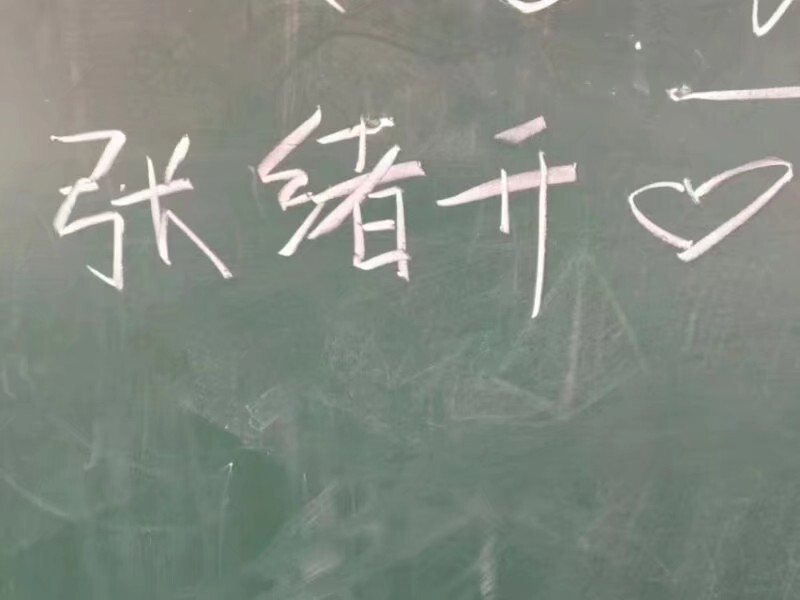 张绪开